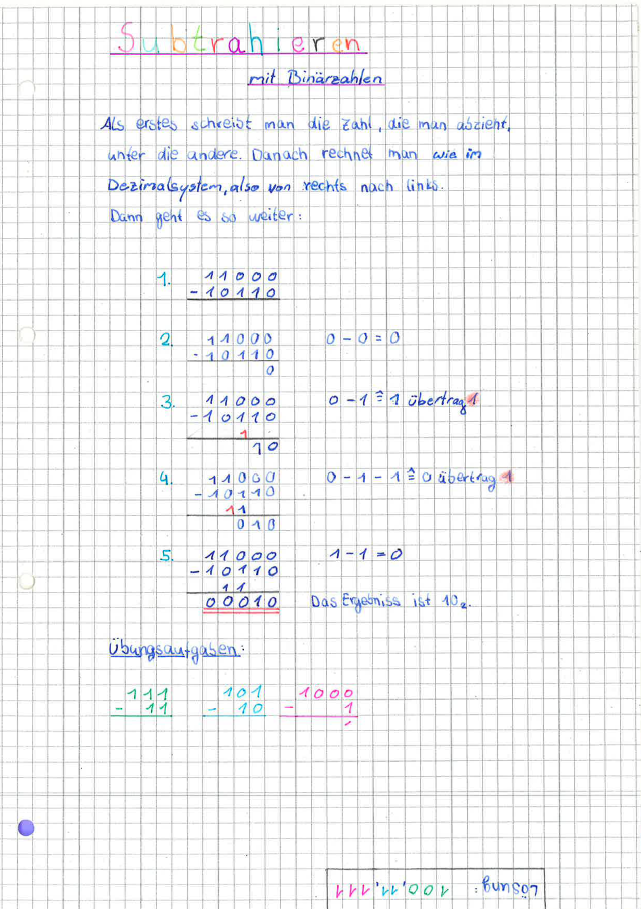 Subtrahieren
mit Binärzahlen
Als erstes schreibt man die Zahl, die man abzieht,
unter die andere. Danach rechnet man wie im
Dezimalsystem, also von rechts nach links.
Dann geht es so weiter:
1. 11000
- 10110
2. 11000 0 - 0 = 0
- 10110
0
3. 11000 0 - 1 ≙ 1 übertrag 1
- 10110
1
10
4. 11000 0 - 1 - 1 ≙ 0 übertrag 1
- 10110
11
010
5. 11000 1 - 1 = 0
- 10110
11
00010 Das Ergebniss ist 10₂.
Übungsaufgaben:
111 101 1000
- 11 - 10 - 1
1
Lösung: 100, 11, 111